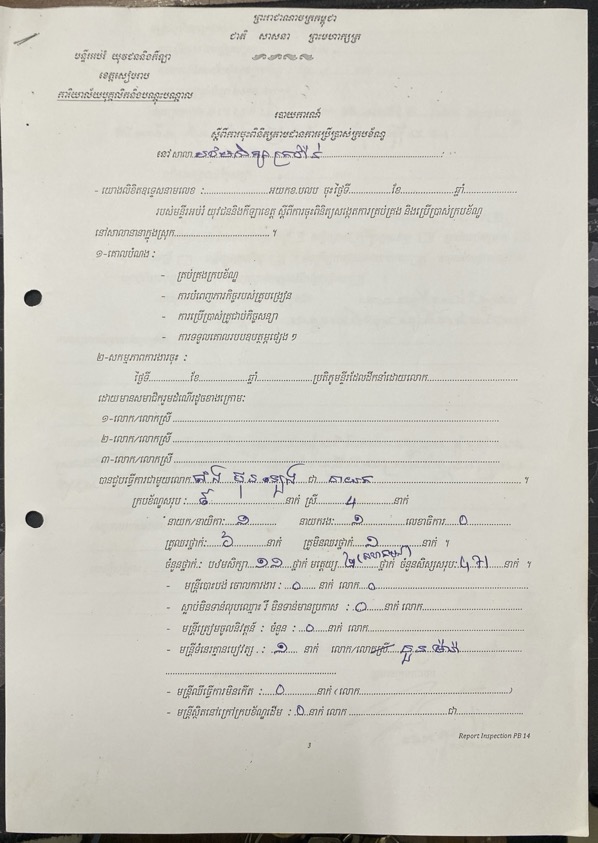 ព្រះរាជាណាចក្រកម្ពុជា
ជាតិ សាសនា ព្រះមហាក្សត្រ
មន្ទីរអប់រំ យុវជននិងកីឡា
ខេត្តសៀមរាប
ការិយាល័យបុគ្គលិកនិងបណ្តុះបណ្តាល
របាយការណ៍
ស្តីពីការចុះពិនិត្យតាមដានការប្រើប្រាស់ក្របខ័ណ្ឌ
នៅសាលា
- យោងលិខិតឧទ្ទេសនាមលេខ :......................អយកខ.បលប ចុះថ្ងៃទី..............ខែ..................ឆ្នាំ..................
របស់មន្ទីរអប់រំ យុវជននិងកីឡាខេត្ត ស្តីពីការចុះពិនិត្យសង្កេតការគ្រប់គ្រង និងប្រើប្រាស់ក្របខ័ណ្ឌ
នៅសាលានានាក្នុងស្រុក................................ ។
១-គោលបំណង :
- គ្រប់គ្រងក្របខ័ណ្ឌ
- ការបំពេញភារកិច្ចរបស់គ្រូបង្រៀន
- ការប្រើប្រាស់គ្រូជាប់កិច្ចសន្យា
- ការទទួលគោលរបបឧបត្ថម្ភផ្សេង ៗ
២-សកម្មភាពការងារចុះ :
ថ្ងៃទី..............ខែ................ឆ្នាំ...................ប្រតិភូមន្ទីរដែលដឹកនាំដោយលោក..............................
ដោយមានសមាជិករួមដំណើរដូចខាងក្រោម:
១-លោក/លោកស្រី ..............................................................
២-លោក/លោកស្រី ..............................................................
៣-លោក/លោកស្រី ..............................................................
បានជួបធ្វើការជាមួយលោក ជា នាយក ។
ក្របខ័ណ្ឌសរុប :....៩....នាក់ ស្រី.....4.....នាក់
នាយក/នាយិកា: ១ នាយករង: ១ លេខាធិការ 0
គ្រូឈរថ្នាក់: ៦ នាក់ គ្រូមិនឈរថ្នាក់ ១ នាក់ ។
ចំនួនថ្នាក់.: បឋមសិក្សា ១១ ថ្នាក់ មត្តេយ្យ ២ ថ្នាក់ ចំនួនសិស្សសរុប: នាក់ ។
- មន្ត្រីបោះបង់ ចោលការងារ : 0 នាក់ លោក 0
- ស្លាប់មិនទាន់លុបឈ្មោះ រឺ មិនទាន់មានប្រកាស : 0 នាក់លោក
- មន្ត្រីត្រៀមចូលនិវត្តន៍ : ចំនួន : 0 នាក់ លោក
- មន្ត្រីទំនេរគ្មានបៀវត្ស . : ១ នាក់ លោក/លោកស្រី
- មន្ត្រីឈឺធ្វើការមិនកើត : 0 នាក់ (លោក )
- មន្ត្រីស្ថិតនៅក្រៅក្របខ័ណ្ឌដើម : 0 នាក់ លោក ជា
Report Inspection PB 14
3